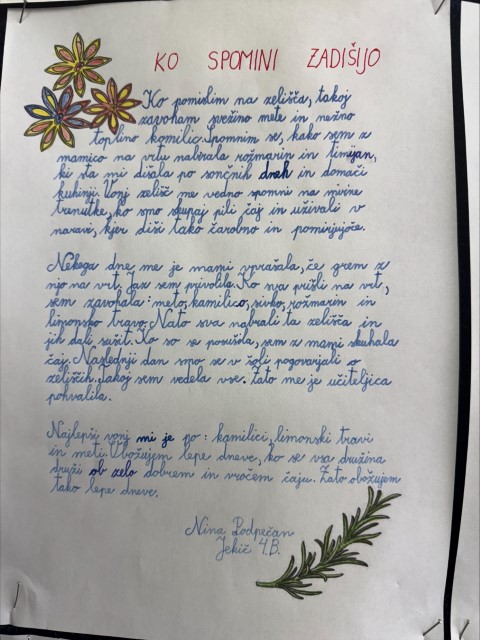 KO SPOMINI ZADIŠIJO
Ko pomislim na zelišča, takoj
zavoham svežino mete in nežno
toplino kamilic. Spomnim se, kako sem z
mamico na vrtu nabirala rožmarin in timijan,
ki sta mi dišala po sončnih dneh in domači
kuhinji. Vonj zelišč me vedno spomni na mirne
trenutke, ko smo skupaj pili čaj in uživali v
naravi, kjer diši tako čarobno in pomirjujoče.
Nekega dne me je mami vprašala, če grem z
njo na vrt. Jaz sem privolila. Ko sva prišli na vrt,
sem zavohala: meto, kamilico, sivko, rožmarin in
limonsko travo. Nato sva nabrali ta zelišča in
jih dali sušit. Ko so se posušila, sem z mami skuhala
čaj. Naslednji dan smo se v šoli pogovarjali o
zeliščih. Takoj sem vedela vse. Zato me je učiteljica
pohvalila.
Najlepši vonj mi je po: kamilici, limonski travi
in meti. Obožujem lepe dneve, ko se vsa družina
druži ob zelo dobrem in vročem čaju. Zato obožujem
tako lepe dneve.
Nina Podpečan
Jekič 4.B.